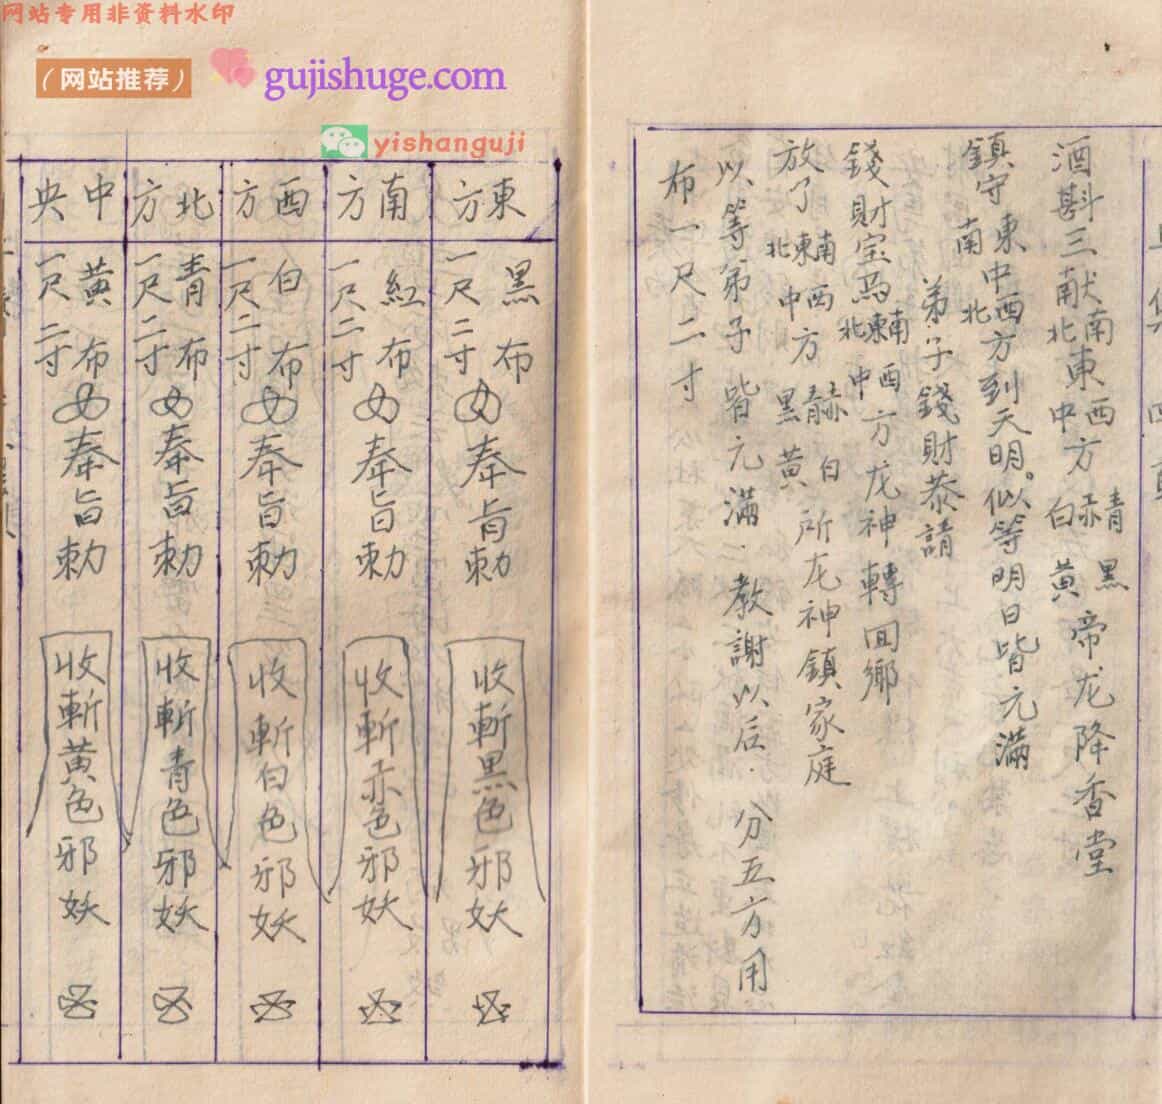 网站专用非资料水印
(网站推荐)
gujishuge.com
yishanguji
酒斟三献南北東西中方青赤白黑黄帝龙降香堂
鎮守東南中西北方到天明。似等明日皆元满
弟子錢財恭請
錢財宝馬南東北西中方龙神轉回鄉
放了南東北西中方赫青黑白黄所龙神鎮家庭
以等弟子皆元满.教謝以后.分五方用
布一尺二寸
東方
黑布
一尺二寸
奉旨勅
收斬黑色邪妖
南方
紅布
一尺二寸
奉旨勅
收斬赤色邪妖
西方
白布
一尺二寸
奉旨勅
收斬白色邪妖
北方
青布
一尺二寸
奉旨勅
收斬青色邪妖
中央
黄布
一尺二寸
奉旨勅
收斬黄色邪妖